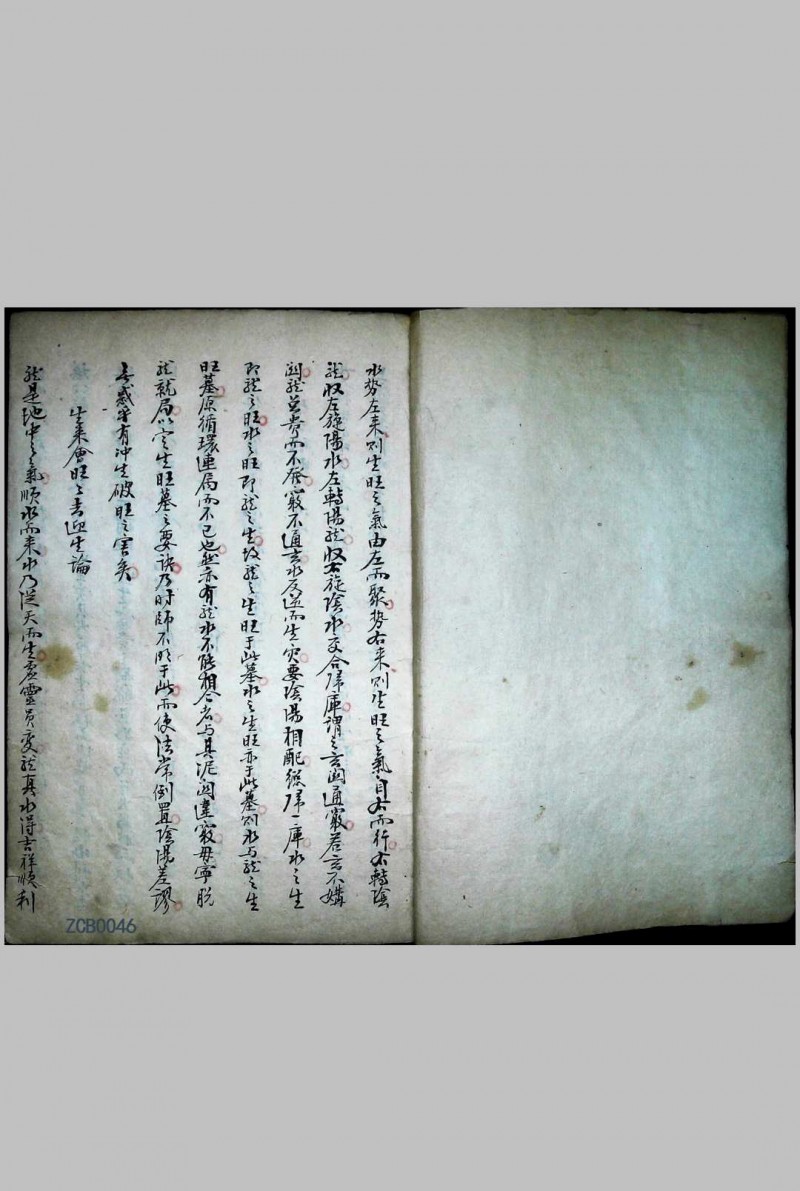 水势左来则生旺之氣由左而聚势右来则生旺之氣自右而行右轉陰
龍収左旋陽水左轉陽龍収右旋陰水交合歸庫謂之玄関通竅若玄不媾
関龍雖貴而不發竅不通玄水反逆而生灾要陰陽相配縂歸一庫水之生
即龍之旺水之旺即龍之生故龍之生旺于此墓水之生旺亦于此墓则水与龍之生
旺墓原循環連局而不已也然亦有龍水不能相合者与其泥関違竅毋寧脱
龍就局以定生旺墓之要訣乃时師不明于此而使法常倒置陰陽差謬
無惑乎有冲生破旺之害矣
生来會旺旺去迎生論
龍是地中之氣順水而来水乃従天而生虛靈員变龍真水得吉祥順利
ZCB0046